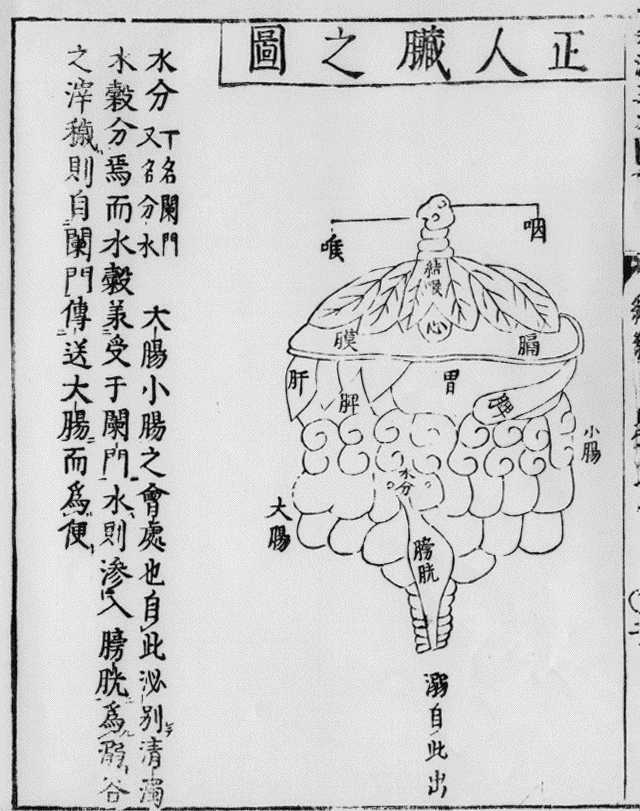 正人臟之圖
咽
喉
結喉
心
膜
膈
肝
脾
胃
小腸
水分
大腸
膀胱
溺自此出
水分
下名闌門
又名分水
大腸小腸之會處也自此泌別清濁
水穀分焉而水穀羕受于闌門水則滲入膀胱為溺谷
之滓穢則自闌門傳送大腸而為便